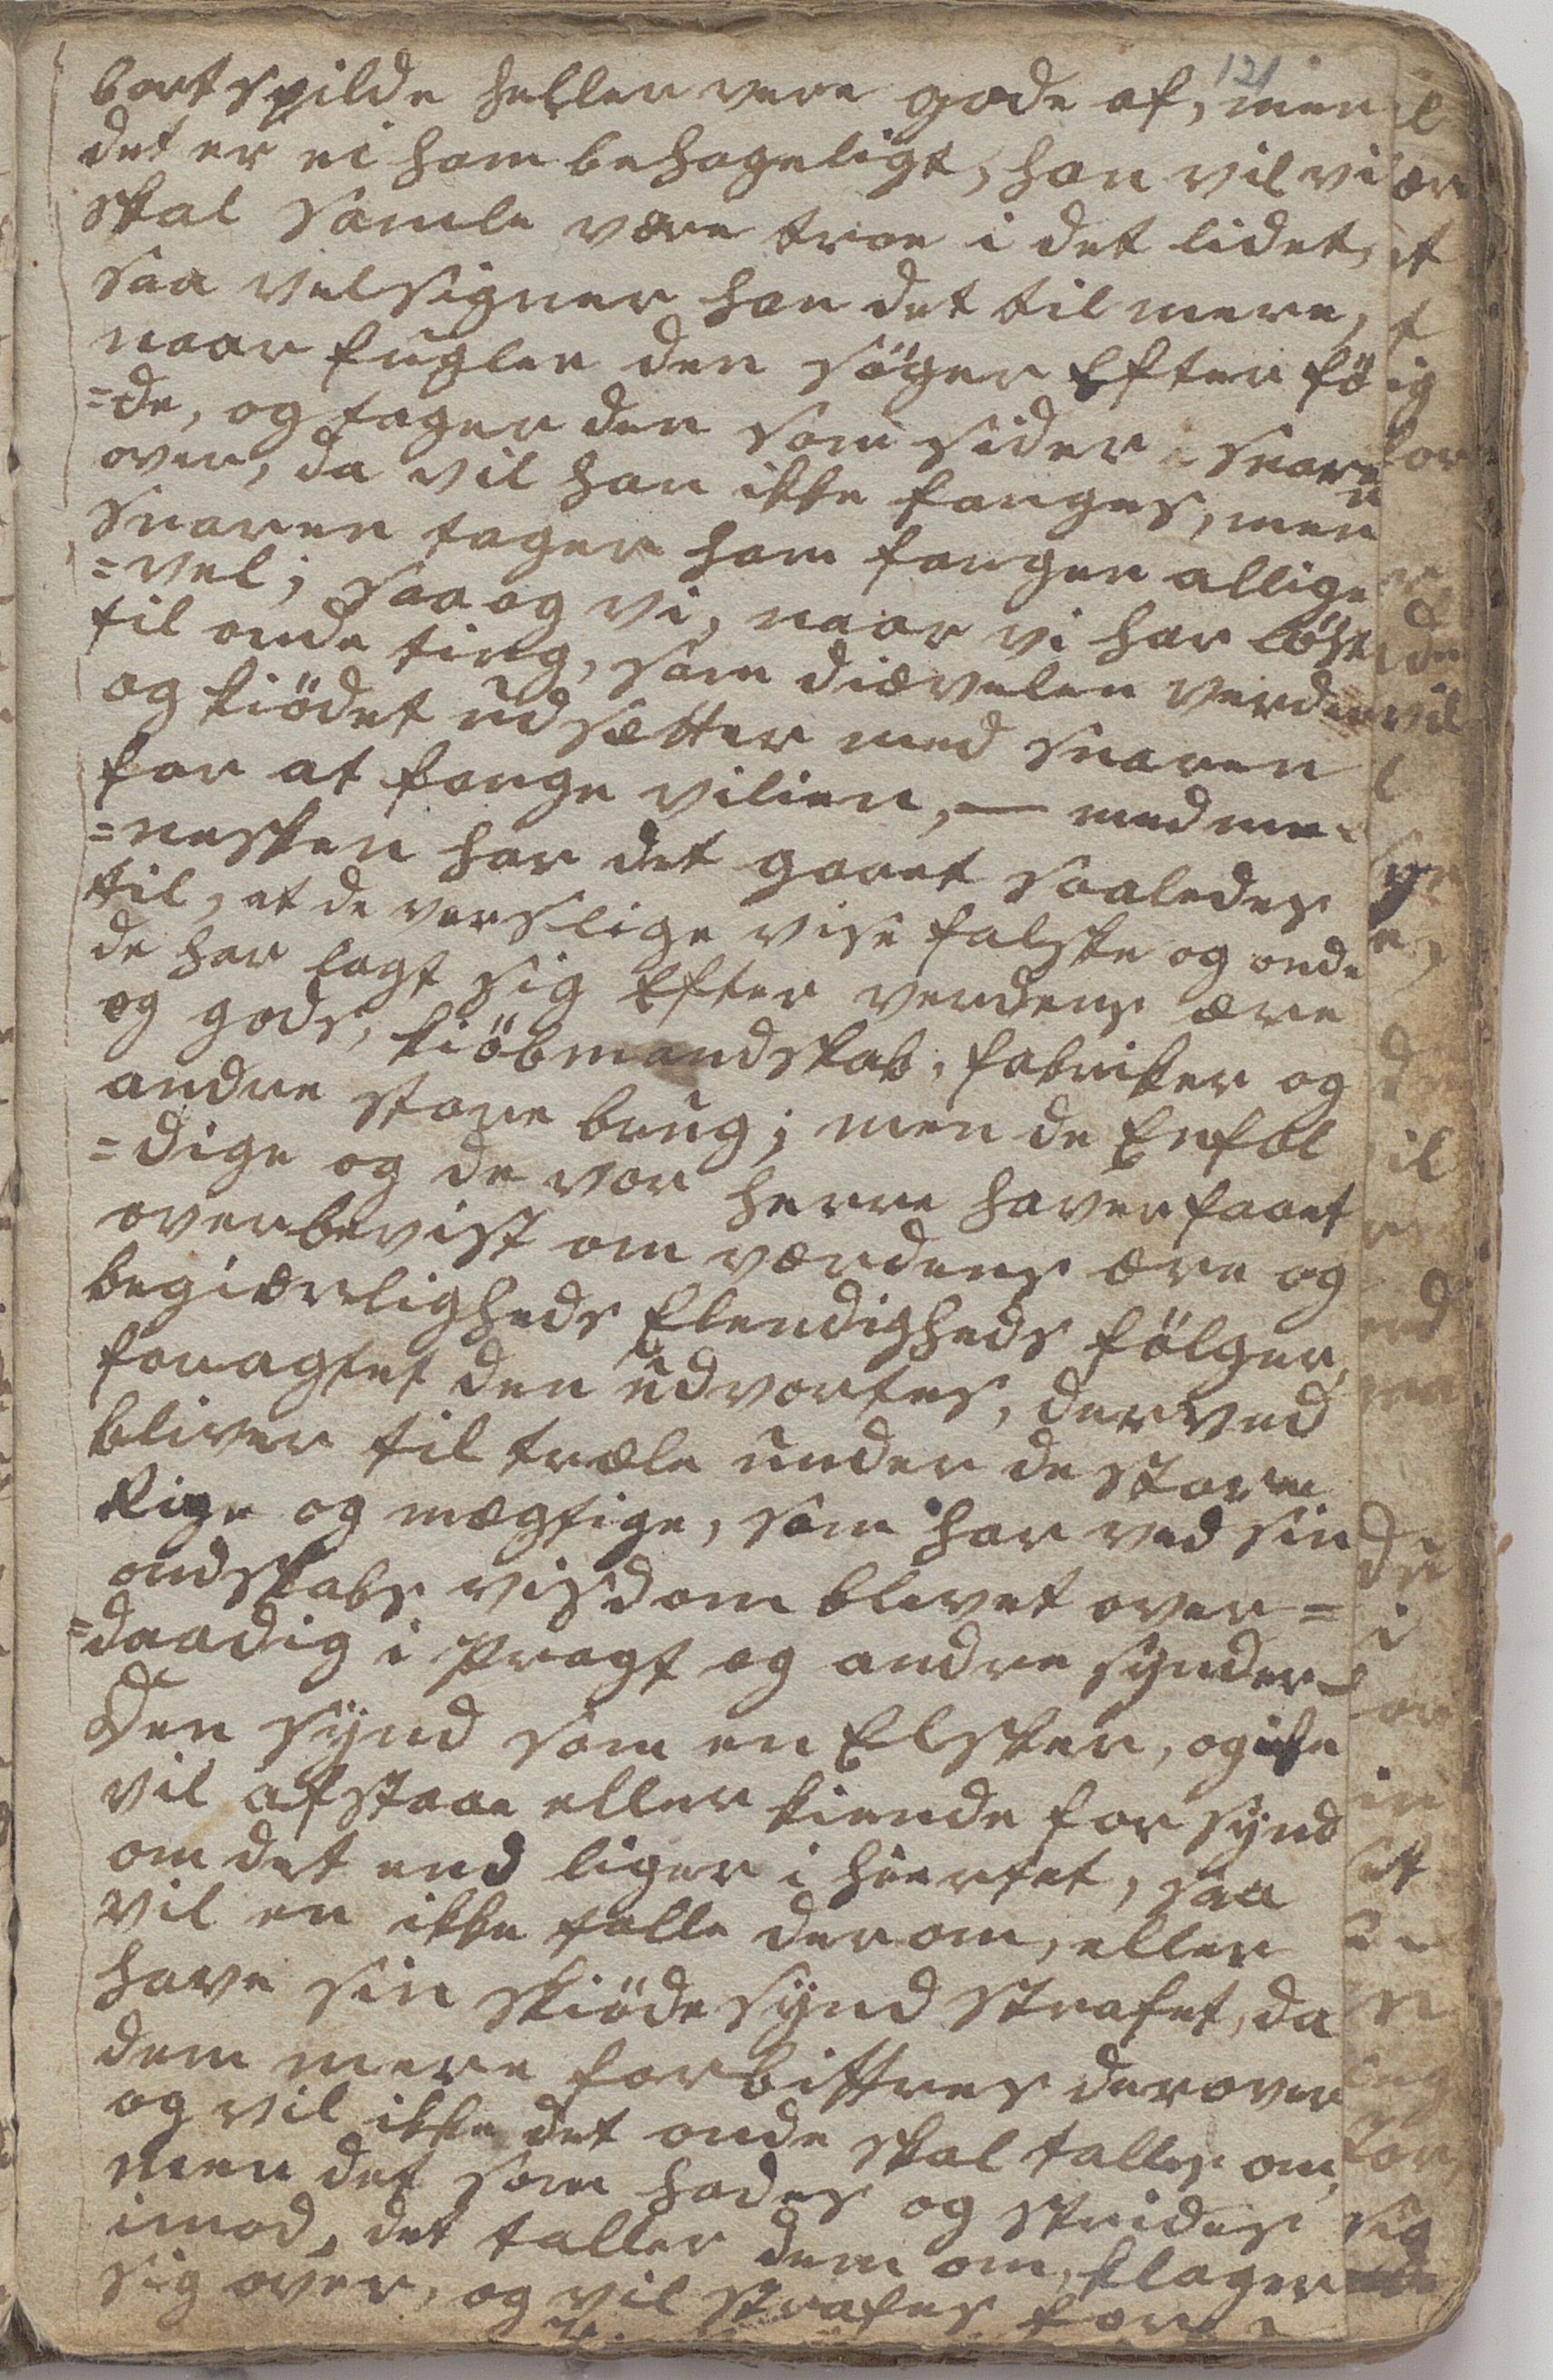 121
bortspilde hellervere gode af, men
det er ei ham behageligt, han vil vi
skal samle være troe i det lidet,
saa velsigner han det til mere,
naar fuglen den söger Efter fö
=de, og tager den som sider i snare
over, da vil han ikke fanges, men
snaren tager ham fangen allige
=vel; saa og vi, naar vi har löst
til onde ting, som diævelen verden
og kiödet udsætter med snaren
for at fange vilien, — med me
=nesken har det gaaet saaledes
til, at de verslige vise falske og onde
de har lagt sig Efter verdens ære
og gods, kiöbmandskab, fabriker og
andre store brug; men de Enfol
=dige og de vor herre haver faaet
overbevist om værdens ære og
begiærligheds Elendigheds fölger,
foragtet den udvortes, derved
bliver til træle under de store
Rige og mægtige, som har ved sin
ondskabs visdom blevet over=
=daadig i Pragt og andre synder —
Den synd som en Elsker, og ike
vil afstaae eller kiende for synd
om det end liger i hiertet, saa
vil en ikke talle derom, eller
have sin skiödesynd strafet, da
dem mere forbittres derover
og vil ikke det onde skal talles om,
men det som hades og strides
imod, det taller dem om, klager
sig over, og vil strafes for